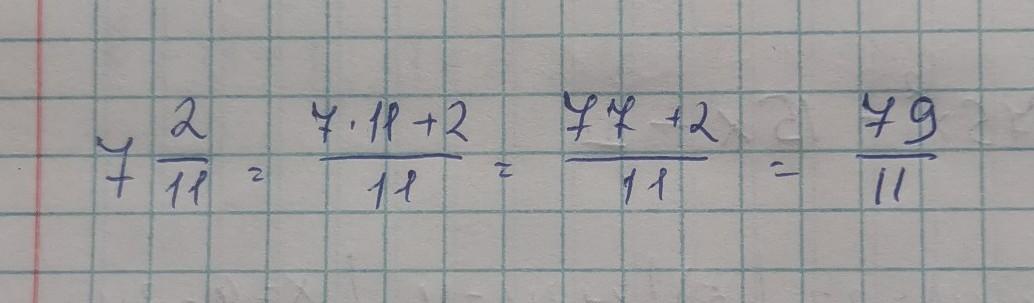 7 2/11 = 7·11+2/11 = 77+2/11 = 79/11